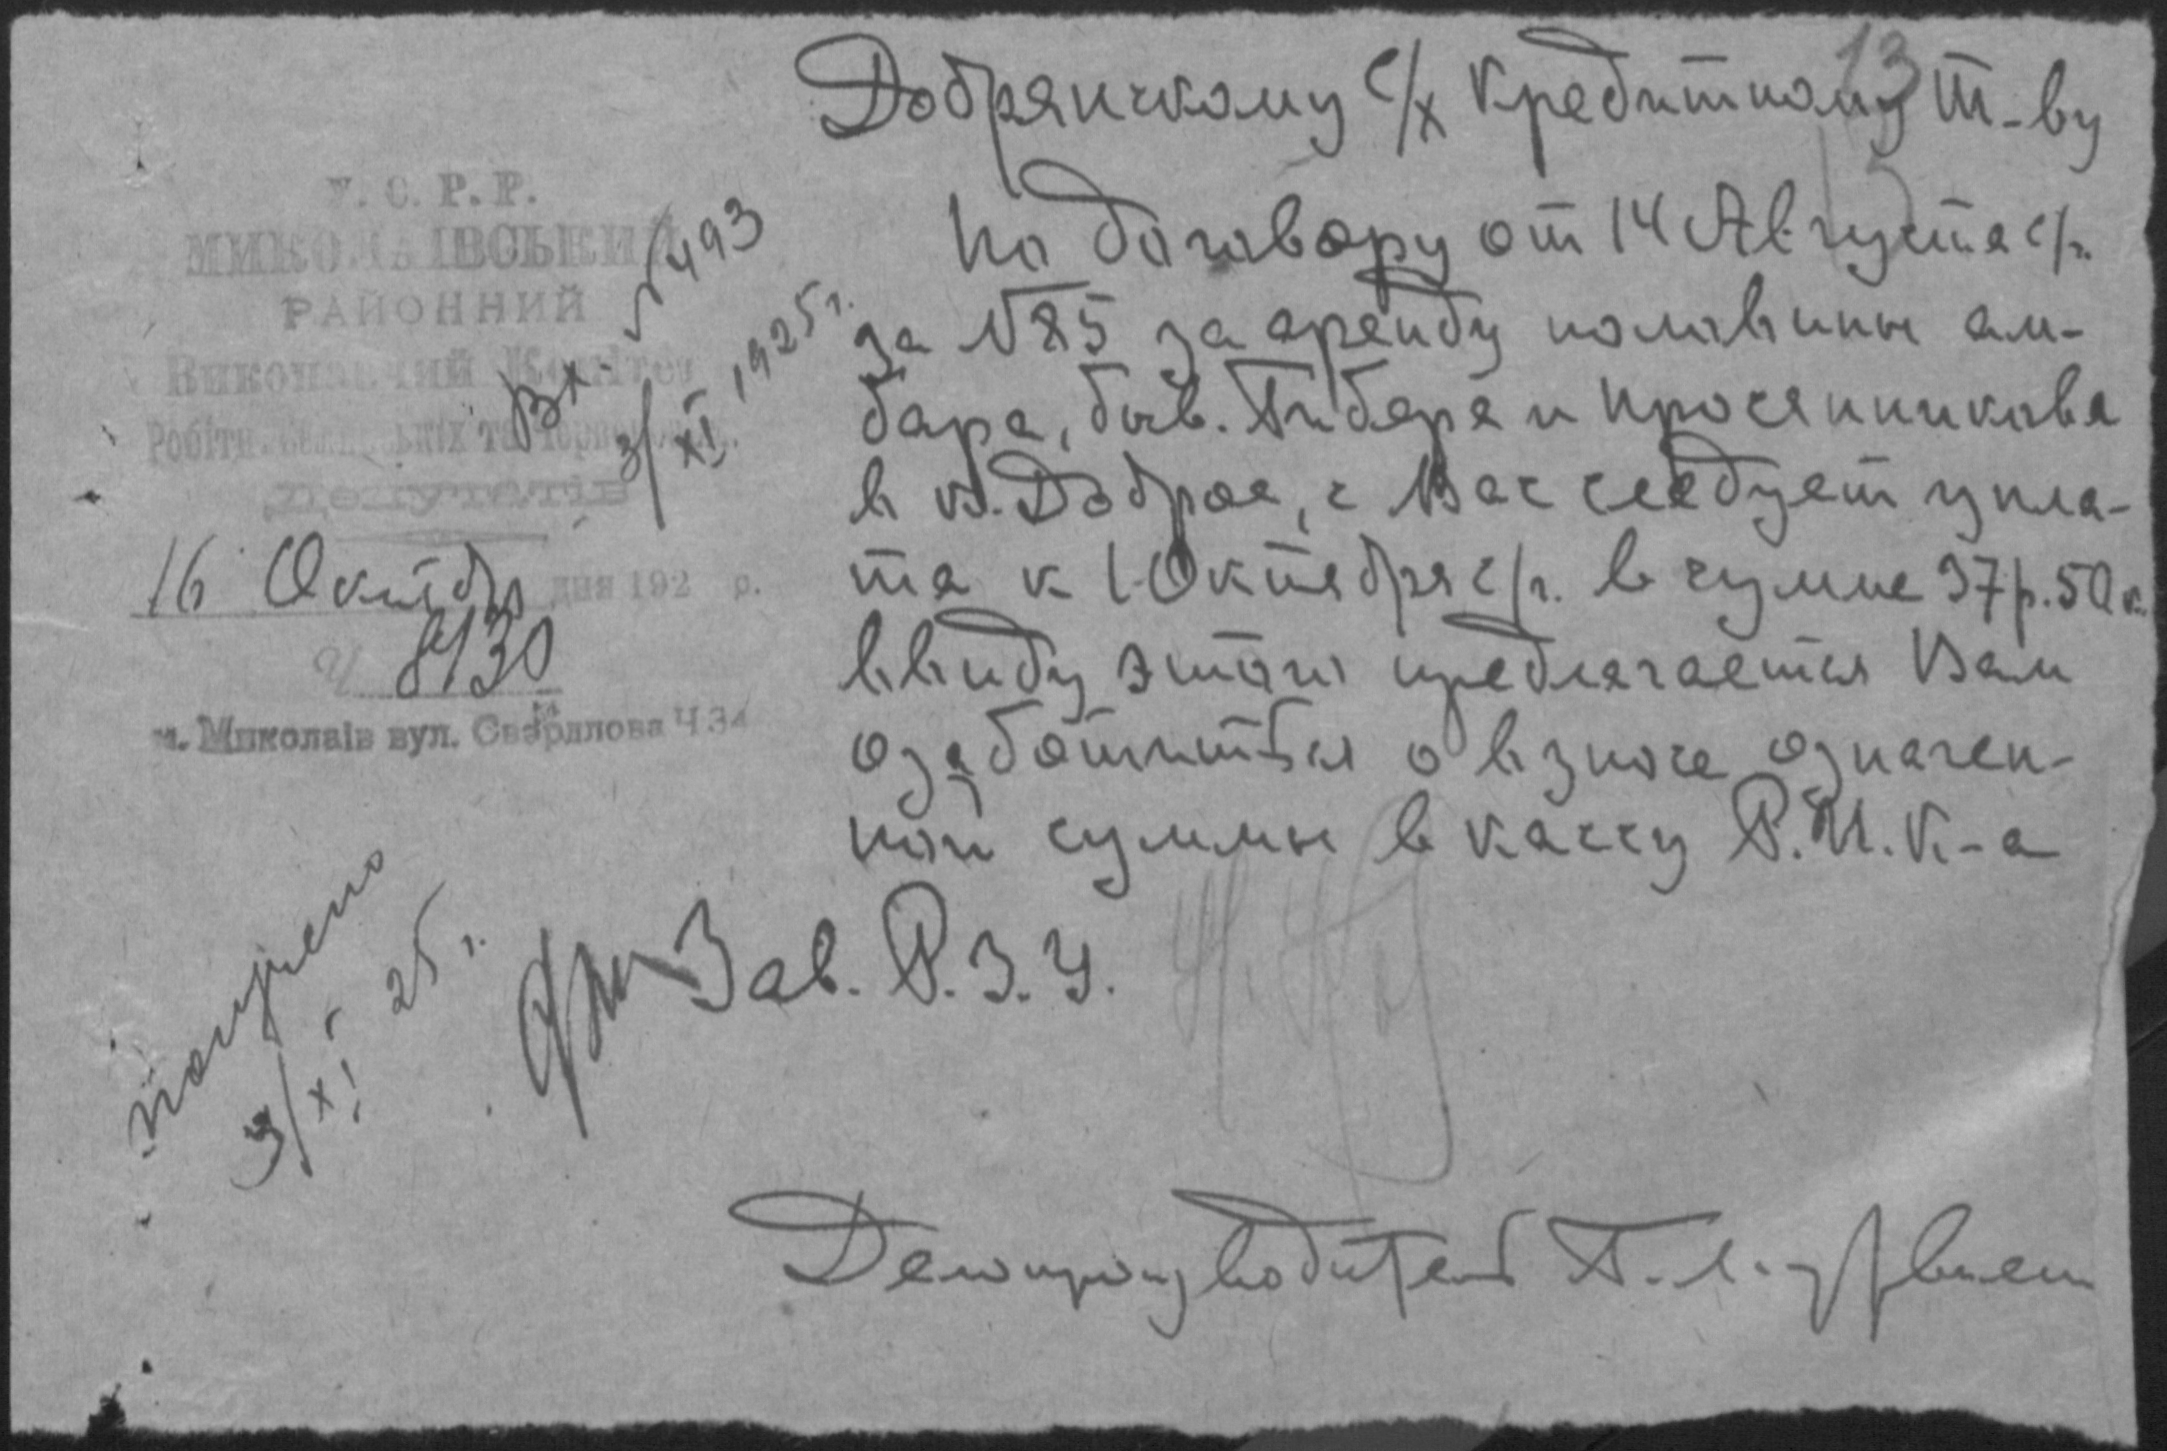 13
Добрянскому с/х Кредитному Т-ву
У.С.Р.Р.
МИКОЛАЇВСЬКИЙ
РАЙОННИЙ
Виконавчий Комітет
Робітн. Селянських та
Депутатів
16 Октябр дня 192 р.
Ч 8130
м. Миколаїв вул. Свердлова Ч 34
Вх. № 493
3/XI 1925 г.
По договору от 14 Августа с/г.
за № 85 за аренду половины ам-
бара, быв. Гибера и Просянникова
в кв. Доброе, с Вас следует упла-
та к 1 Октября с/г. в сумме 37 р. 50 к.
ввиду этого предлагается Вам
озаботиться о взносе означен-
ной суммы в кассу Р.И.К-а
Зав. Р.З.У.
3/XI 25 г.
Делопроизводитель